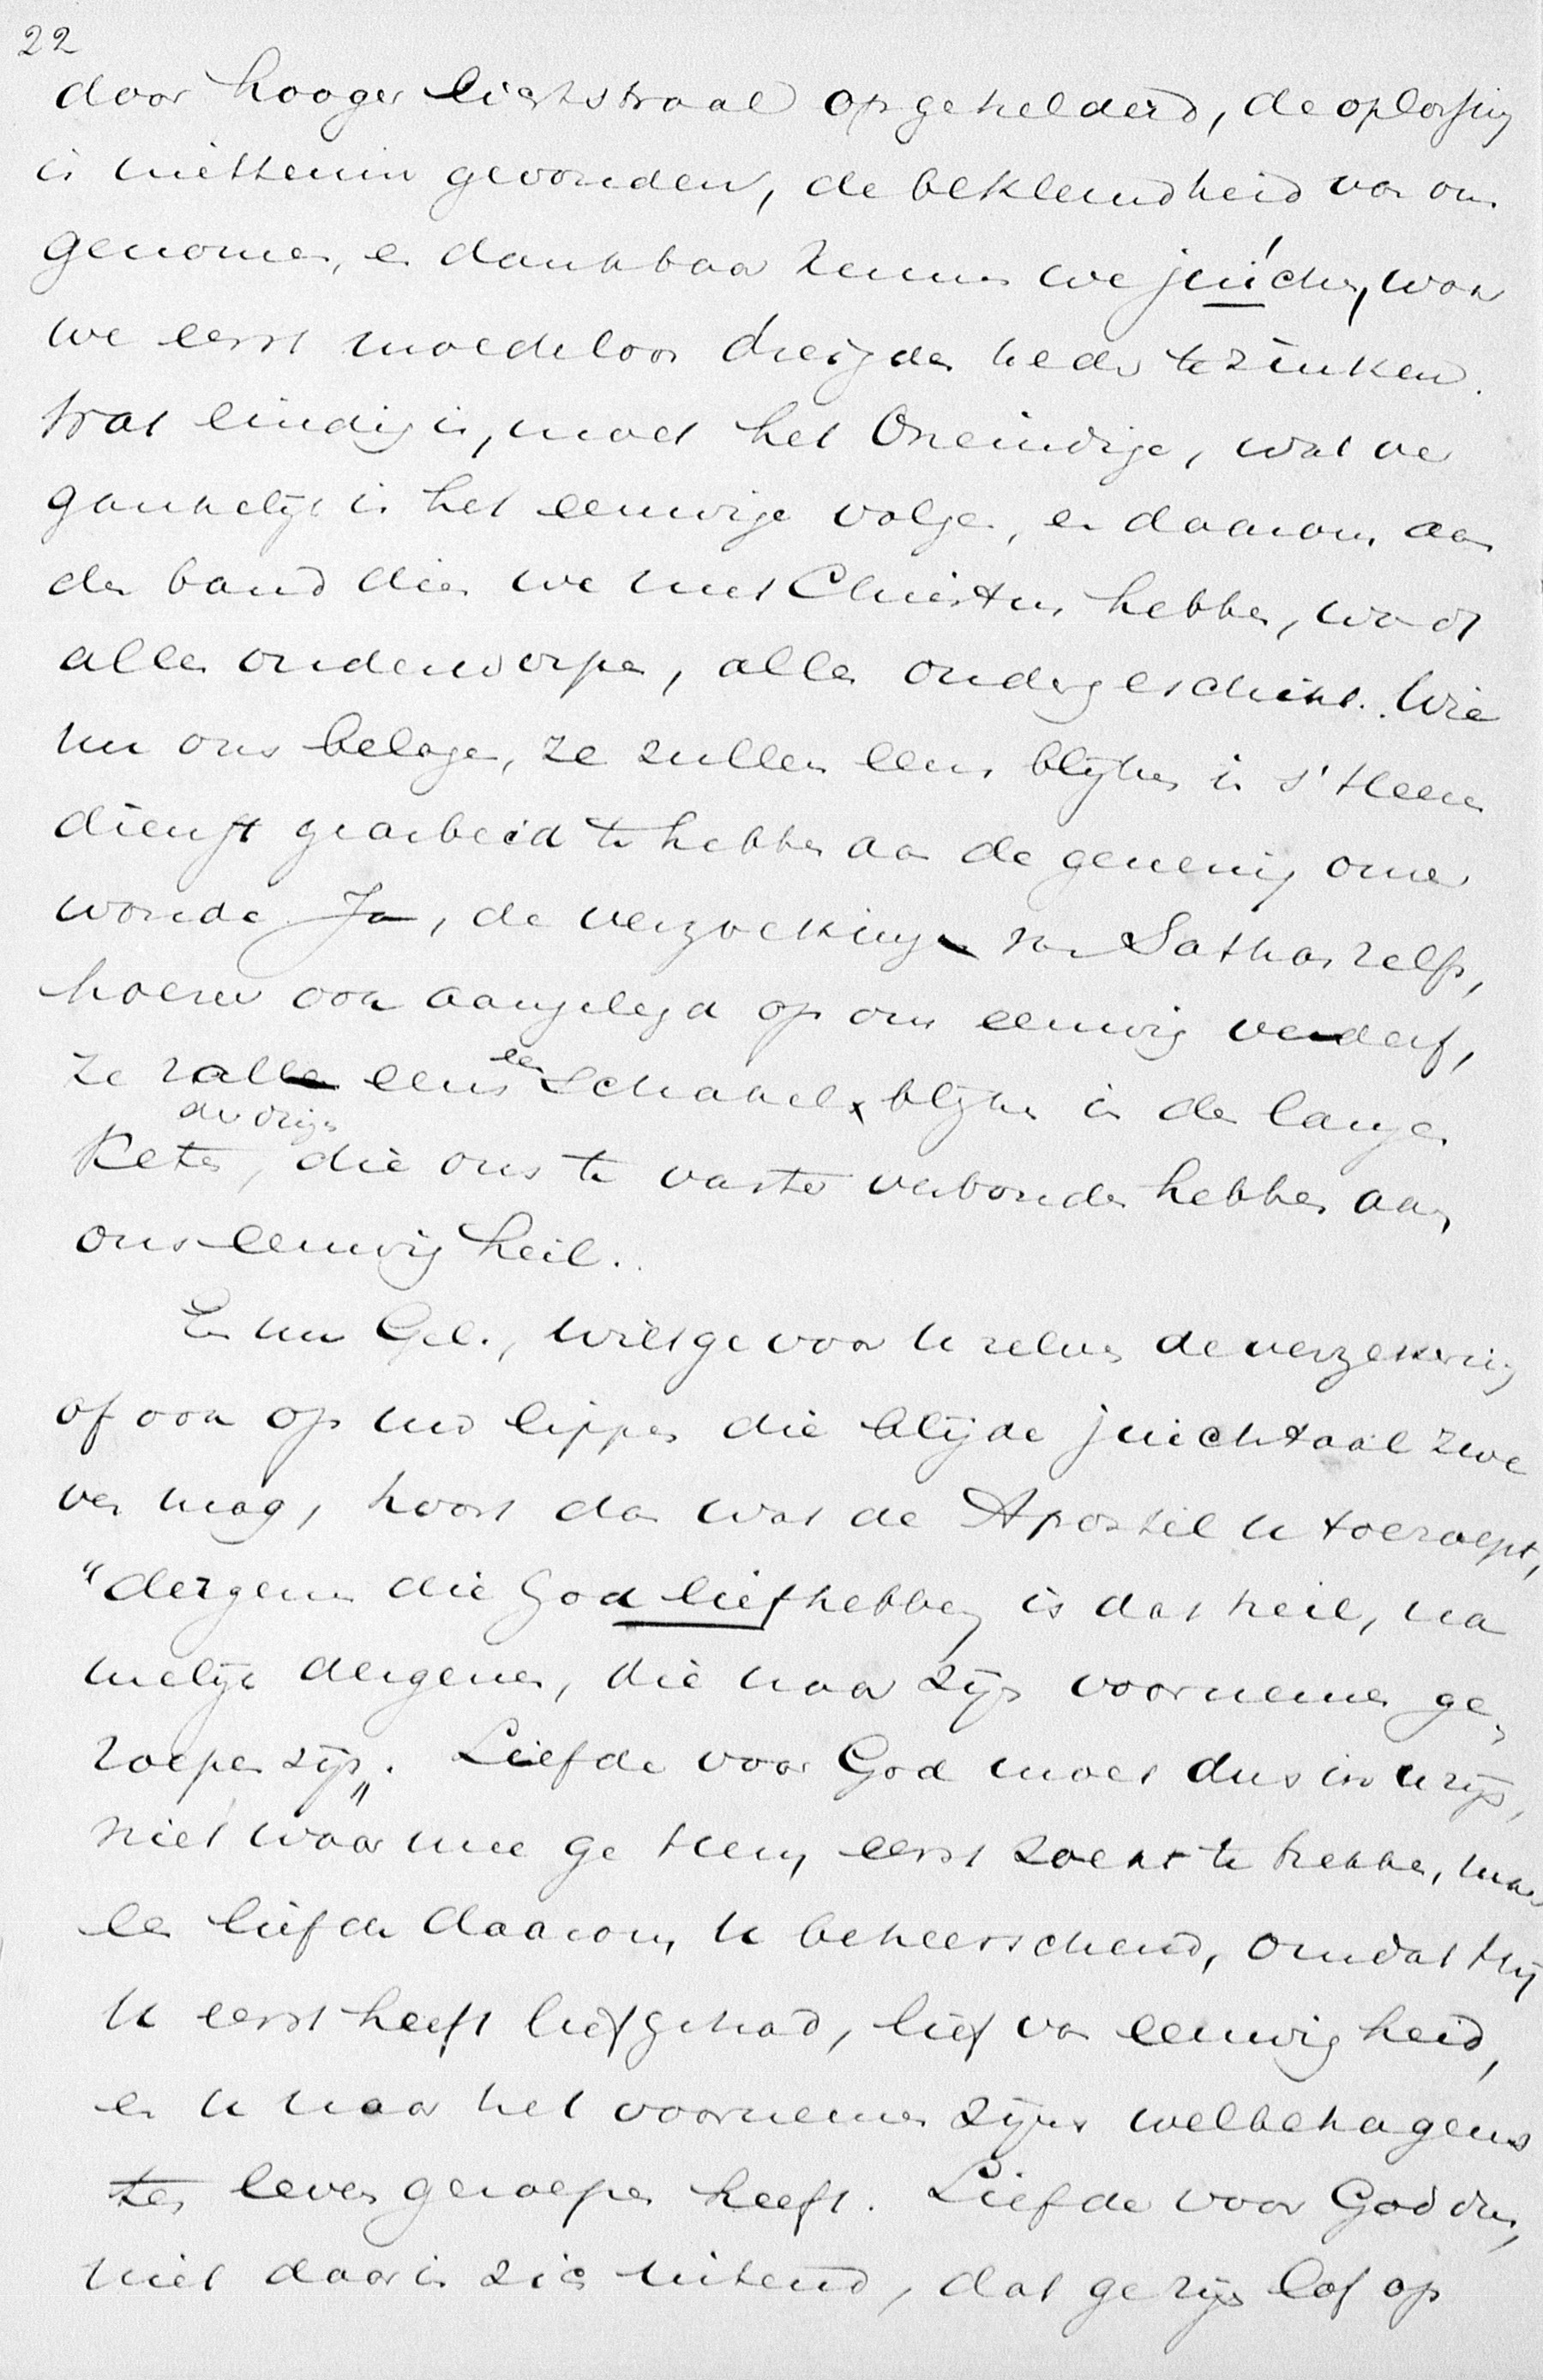 22
door hooger lichtstraal opgehelderd, de oplossing
is niettemin gevonden, de beklemdheid van ons
genomen, en dankbaar kunnen we juichen, waar
we eerst moedeloos dreigden neder te zinken.
Wat eindig is, moet het Oneindige, wat ver
gankelijk is het eeuwige volgen, en daarom aan
den band dien we met Christus hebben, wordt
alles onderworpen, alles ondergeschikt. Wie
nu ons belagen, ze zullen eens blijken in s' Heeren
dienst gearbeid te hebben aan de genezing onzer
wonde. Ja, de verzoeking van Sathan zelfs,
hoezeer ook aangelegd op ons eeuwig verderf,
ze zal eens een schakel blijken in de lange
keten, der dingen die ons te vaster verbonden hebben aan
ons eeuwig heil.
En nu Gel., wilt ge voor u zelven de verzekering
of ook op uw lippen die blijde juichtaal zwe
ven mag, hoort dan wat de Apostel u toeroept,
"dezgenen die God liefhebben is dat heil, na
melijk dengenen, die naar zijn voornemen ge-
roepen zijn". Liefde voor God moet dus in u zijn,
niet waarmee ge Hem eerst zoekt te trekken, maar
een liefde daarom u beheerschend, omdat Hij
u eerst heeft liefgehad, lief van eeuwigheid,
en u naar het voornemen zijns welbehagens
ten leven geroepen heeft. Liefde voor God dus,
niet daarin zich uitend, dat ge zijn lof op